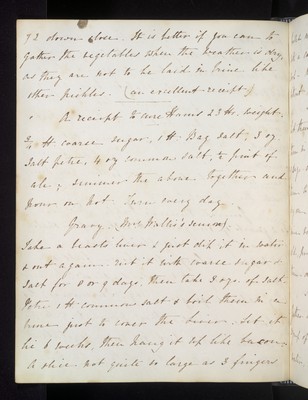 72 down close. It is better if you can to
gather the vegetables when the weather is dry
as they are not to be laid in brine like
other pickles. (an excellent receipt)
A receipt to cure Hams 23 lb. weight.
¾ lb coarse sugar, 1 lb Bay Salt, 3 oz
Salt petre, 4 oz common salt, ½ pint of
ale, simmer the above together and
pour on hot. Turn every day.
Gravy. (Mrs Wallis's)
Take a beasts liver & just dip it in water
& out again. rub it with coarse sugar &
Salt for 8 or 9 days, then take 3 ozs. of Salt
Petre 1 lb common salt & boil them in a
brine just to cover the Liver. Let it
lie 6 weeks, then hang it up like bacon.
A slice not quite so large as 3 fingers